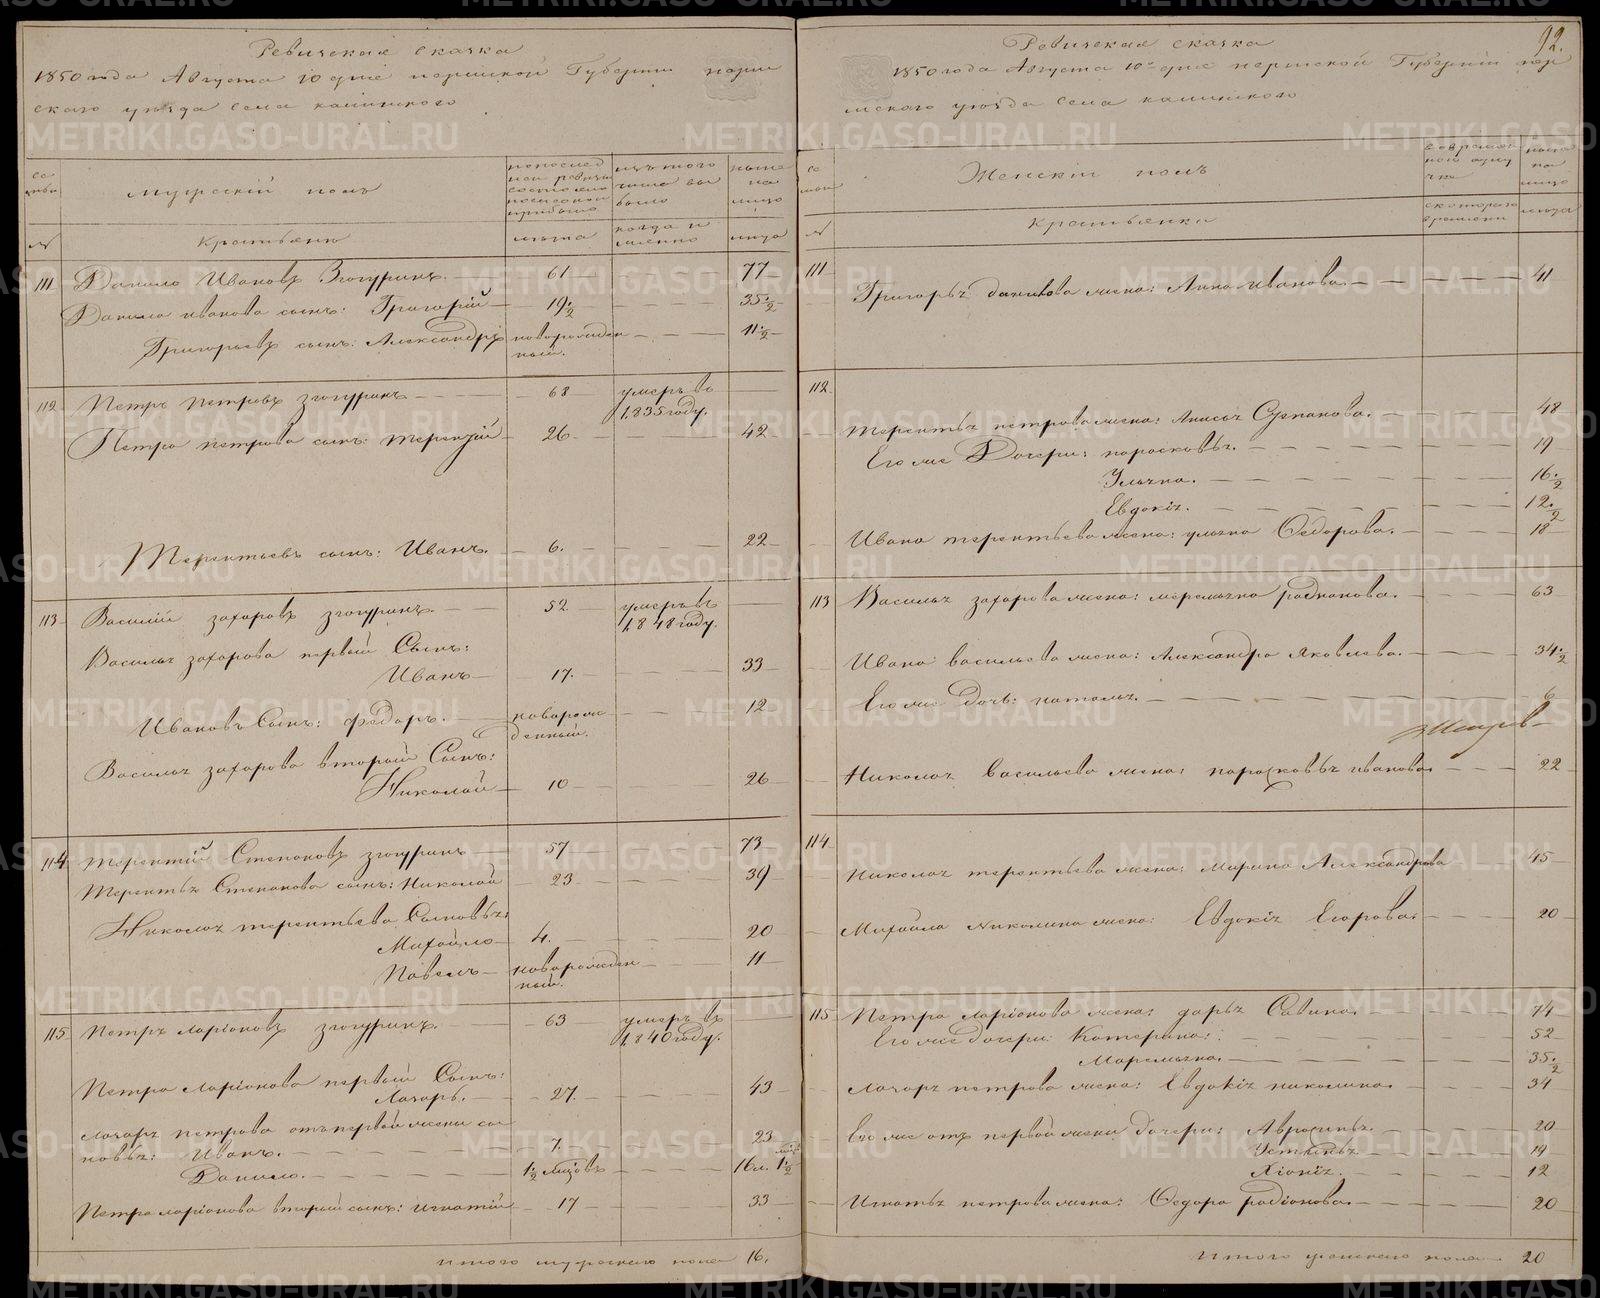 Ревижская сказка
1850 года Августа 10 дне пермской Губернии перм
скаго уезда села
мужской полъ
по последней ревизіи состояло и после оной прибыло
изъ того числа вы было
ныне на лицо
№
Крестьяне
лета
когда и именно
лета
111 Данило Ивановъ Згогуринъ. 61 77
Данила иванова сынъ: Григорій 19½ 35½
Григорьевъ сынъ: Александръ новорожден 11½
ный.
112 Петръ Петровъ згогуринъ 68 умеръ в
1835 году.
Петра петрова сынъ: терентій 26 42
Терентьевъ сынъ: Иванъ. 6. 22
113 Василій захаровъ згогуринъ 52 умеръ в
1848 году.
Василья захарова первый Сынъ:
Иванъ 17. 33
Ивановъ Сынъ: федоръ. новорож 12
денный.
Василья захарова второй Сынъ:
Николай 10 26
114 терентій Степановъ згогуринъ 57 73
Терентья Степанова сынъ: Николай 23 39
Николая терентьева Сыновья:
Михайло 4. 20
Павелъ новорожден 11
ный.
115 Петръ ларіоновъ згогуринъ. 63 умеръ въ
1840 году.
Петра Ларіонова первый Сынъ:
Лазарь. 27. 43
лазаря петрова отъ первой жены сы
новья: Иванъ. 7. 23
Данило. 1½ 16 л. 1½
Петра ларіонова второй сынъ: игнатій 17 33
итого мужескаго пола 16.
92.
Ревижская сказка
1850 года Августа 10 дне пермской Губерніи пер
мскаго уезда Села
Женскій полъ
№
Крестьянка
с котораго времени
лета
111
Григорья данилова жена: Анна Иванова. 41
112
терентья петрова жена: Анисья Степанова. 48
Его же Дочери: парасковья. 19
Ульяна. 16½
Евдокія. 12½
Ивана терентьева жена: ульяна Федорова. 18
113 Василья захарова жена: маремьяна радионова. 63
Ивана васильева жена: Александра Яковлева. 34½
Его же дочь: наталья. 6
Николая васильева жена: парасковья иванова. 22
114
Николая терентьева жена: Марина Александрова 45
Михайла Николина жена: Евдокія Егорова. 20
115 Петра ларіонова жена: дарья Савина. 74
Его же дочери: Катерина: 52
Маремьяна. 35½
лазаря петрова жена: Евдокія николина. 34
Его же отъ первой жены дочери: Авросинья. 20
Устинья 14
Хіонія. 12
Игнатья петрова жена: Федора радіонова. 20
Итого женскаго пола 20
METRIKI.GASO-URAL.RU